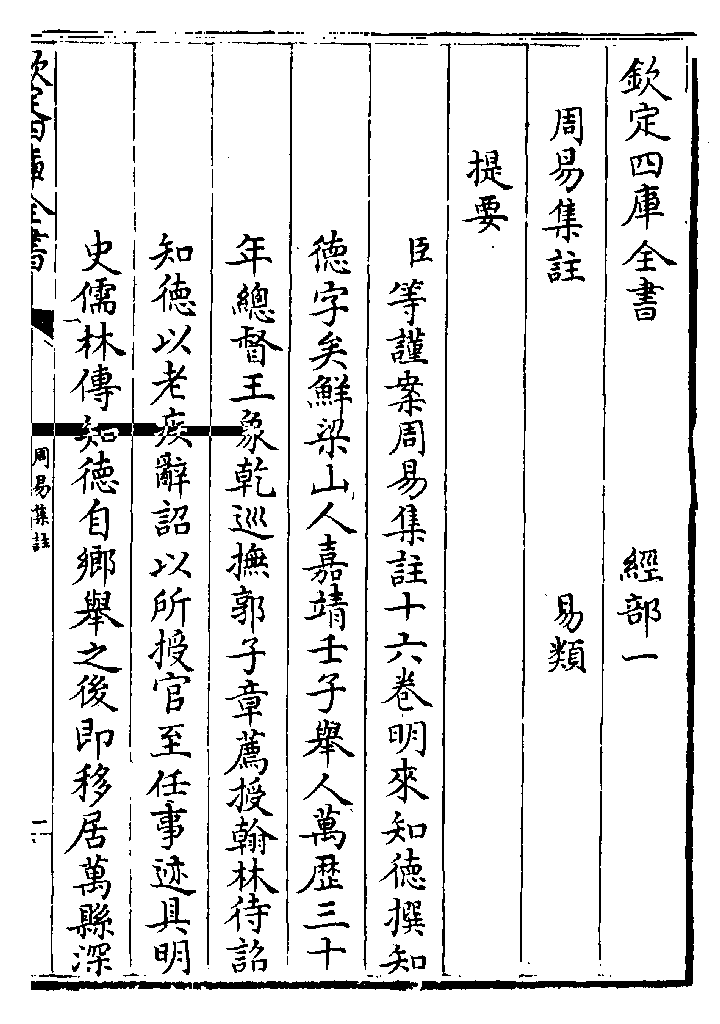 欽定四庫全書　經部一
周易集註　易類
提要
臣等謹案周易集註十六卷明來知德撰知
德字矣鮮梁山人嘉靖壬子舉人萬歴三十
年總督王象乾巡撫郭子章薦授翰林待詔
知德以老疾辭詔以所授官至任事迹具明
史儒林傳知德自鄉舉之後即移居萬縣深
欽定四庫全書
周易集註